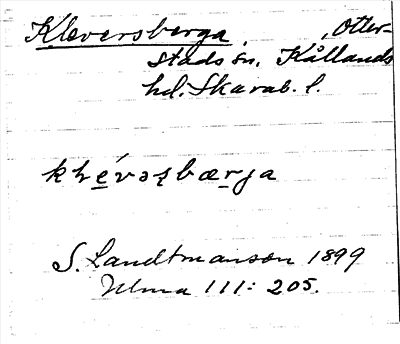 Kleversberga, Otter-
stads sn. Kållands
hd. Skarab. l.
kl̥évəʂbærja
S. Landtmanson 1899
Ulma 111: 205.